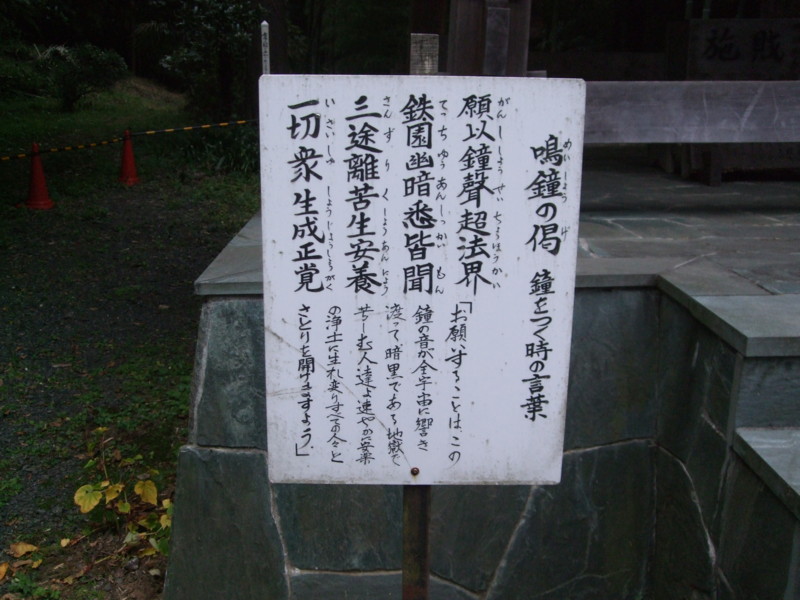 鳴鐘の偈 鐘をつく時の言葉
めいしょう げ
願以鐘聲超法界
がんししょうせいちょうほうかい
鉄園幽暗悉皆聞
てっちゆうあんしっかいもん
三途離苦生安養
さんずりくしょうあんにょう
一切衆生成正覚
いっさいしゅじょうじょうしょうがく
「お願いすることは、この
鐘の音が全宇宙に響き
渡って暗黒である地獄で
苦しむ人達よ速やかに安楽
の浄土に生れ変りすべての人々と
さとりを開けますよう。」
施賤